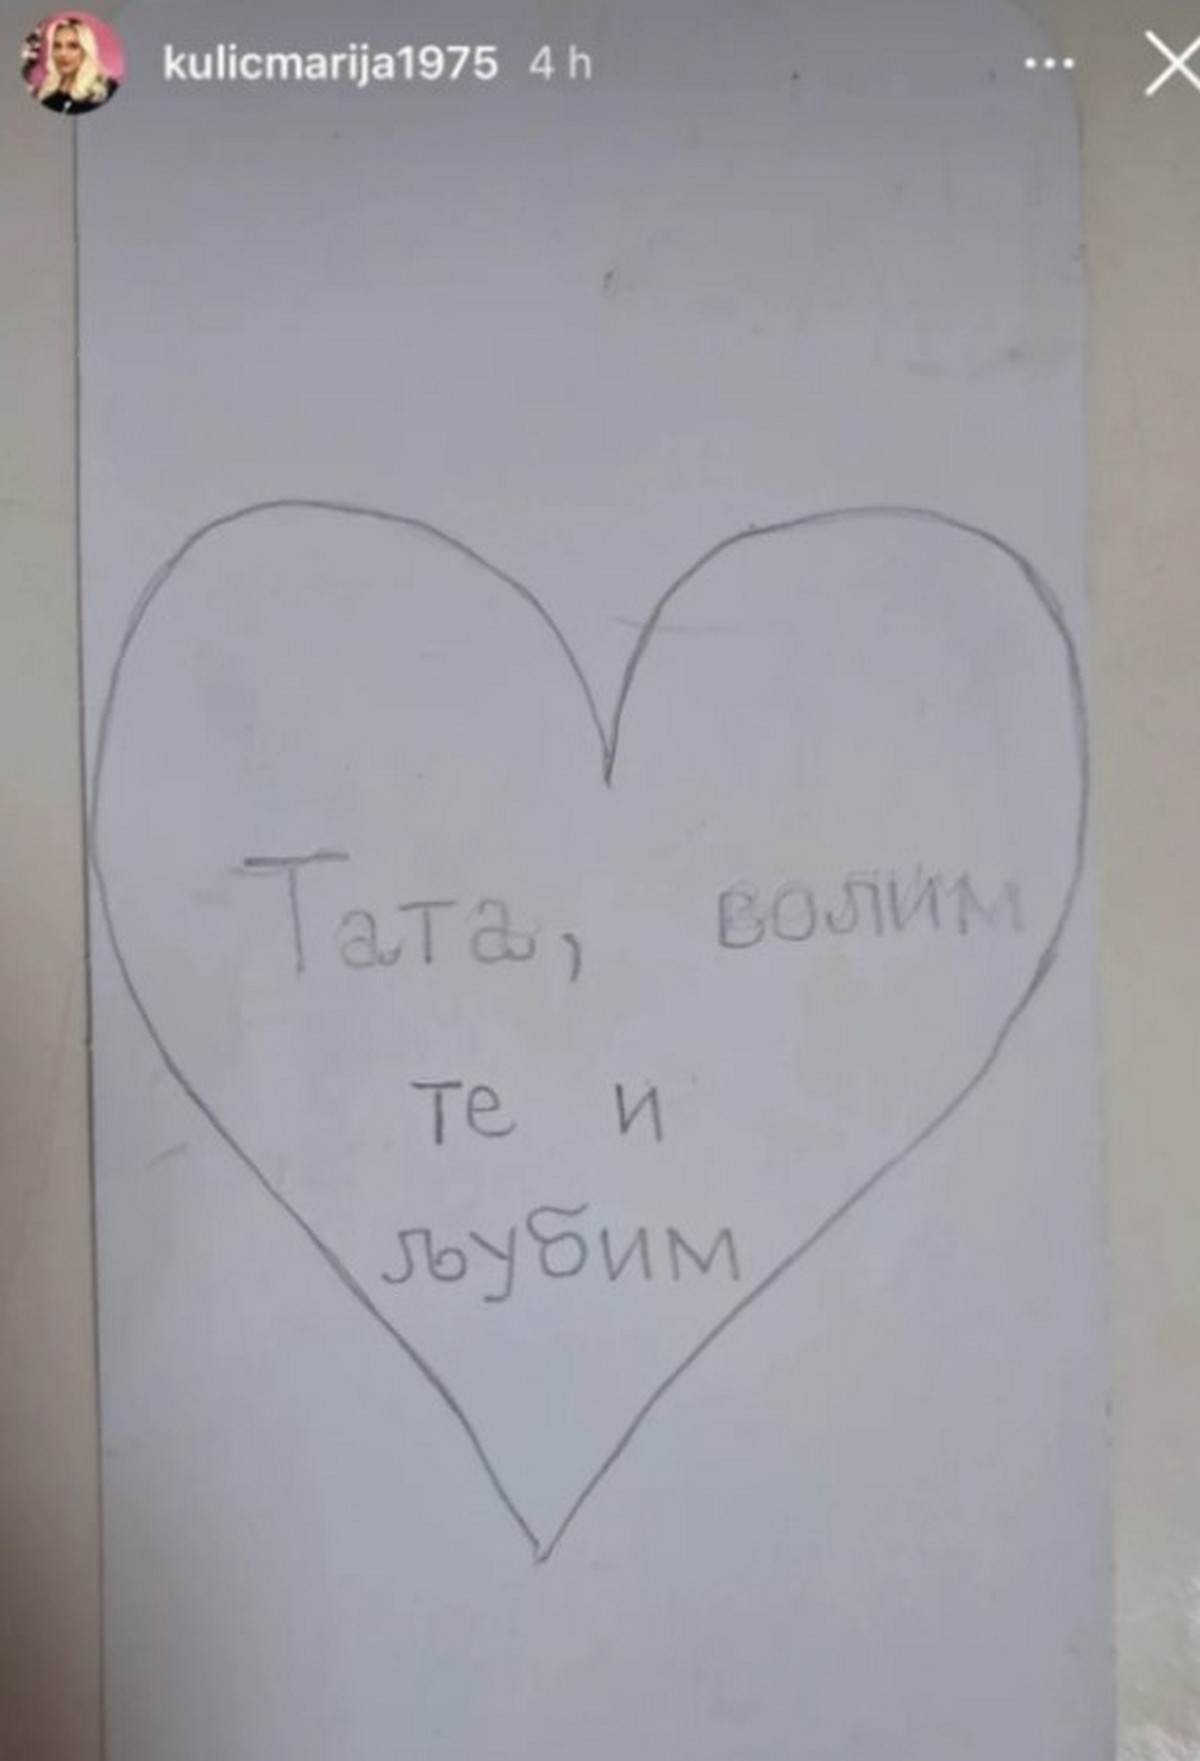 kulicmarija1975 4 h
Тата, волим
те и
љубим